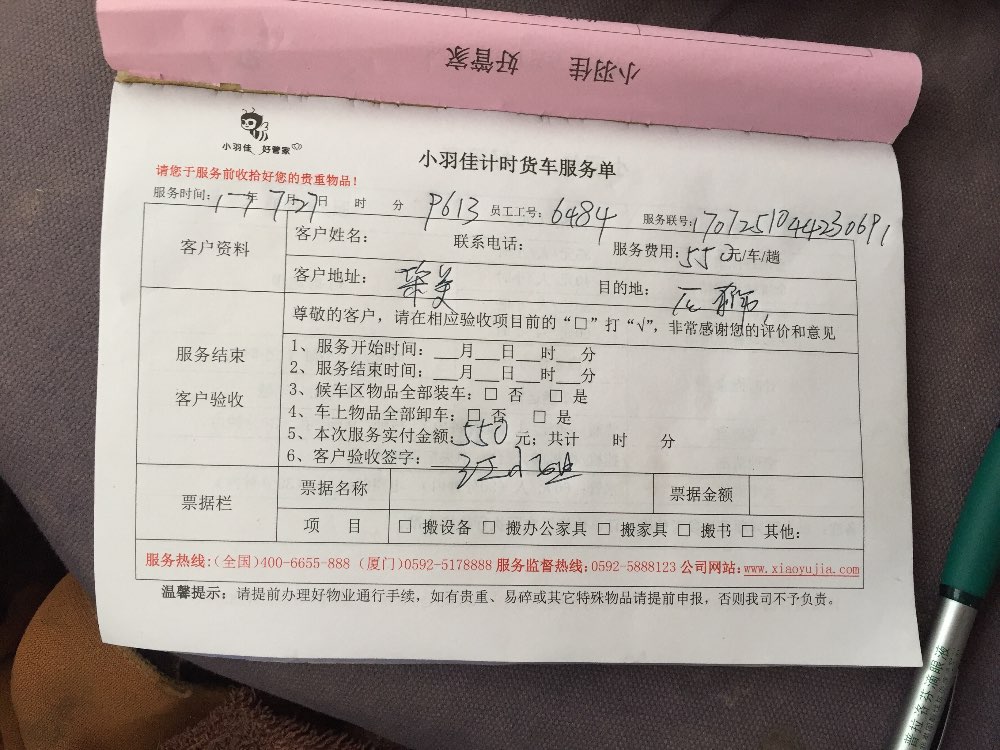 小羽佳 好管家
小羽佳 好管家
小羽佳计时货车服务单
请您于服务前收拾好您的贵重物品！
服务时间：一七年 7月27日 时 分 P613 员工工号：6484 服务联号：1707251044230691
客户资料 客户姓名： 联系电话： 服务费用：550元/车/趟
客户地址： 目的地：
尊敬的客户，请在相应验收项目前的“□”打“√”，非常感谢您的评价和意见
服务结束
客户验收
1、服务开始时间：___月___日___时___分
2、服务结束时间：___月___日___时___分
3、候车区物品全部装车：□ 否 □ 是
4、车上物品全部卸车：□ 否 □ 是
5、本次服务实付金额：550 元；共计 时 分
6、客户验收签字：
票据栏 票据名称 票据金额
项 目 □ 搬设备 □ 搬办公家具 □ 搬家具 □ 搬书 □ 其他：
服务热线：(全国)400-6655-888 (厦门)0592-5178888 服务监督热线：0592-5888123 公司网站：www.xiaoyujia.com
温馨提示：请提前办理好物业通行手续，如有贵重、易碎或其它特殊物品请提前申报，否则我司不予负责。
普拉洛芬滴眼液